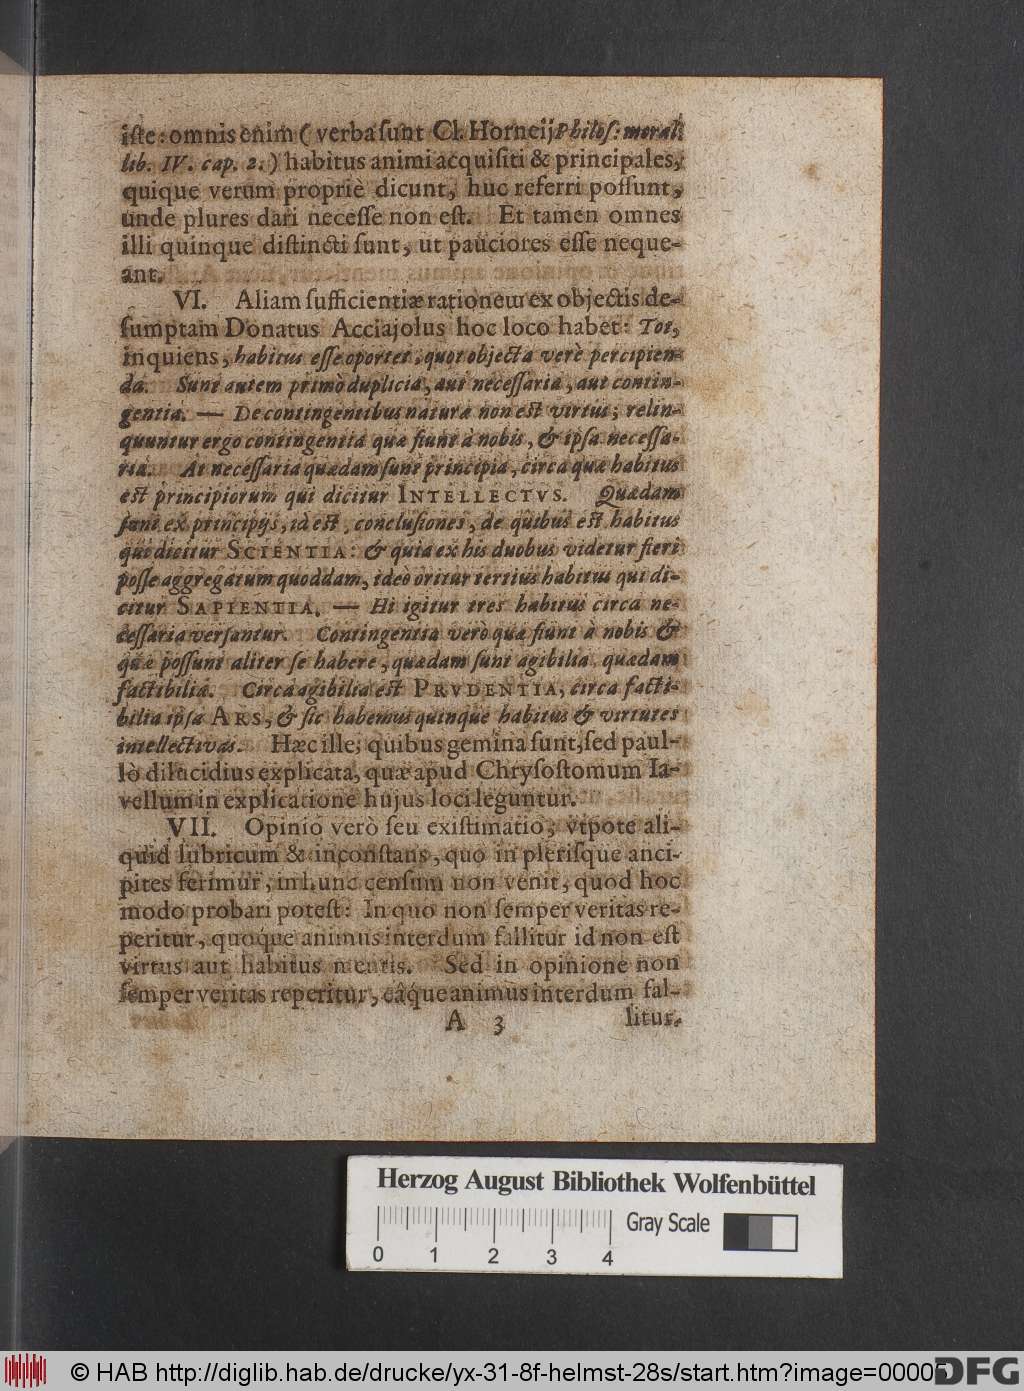 iſte: omnis enim ( verba ſunt Cl. Horneij Philoſ: moral.
lib. IV. cap. 2. ) habitus animi acquiſiti & principales,
quique verum propriè dicunt, huc referri poſſunt,
unde plures dari neceſſe non eſt. Et tamen omnes
illi quinque diſtincti ſunt, ut pauciores eſſe neque-
ant.
VI. Aliam ſufficientiæ rationem ex objectis de-
ſumptam Donatus Acciajolus hoc loco habet: Tot,
inquiens, habitus eſſe oportet, quot objecta verè percipien-
da. Sunt autem primò duplicia, aut neceſſaria, aut contin-
gentia. — De contingentibus naturæ non eſt virtus; relin-
quuntur ergo contingentia quæ fiunt à nobis, & ipſa neceſſa-
ria. At neceſſaria quædam ſunt principia, circa quæ habitus
eſt principiorum qui dicitur INTELLECTVS. Quædam
ſunt ex principijs, id eſt, concluſiones, de quibus eſt habitus
qui dicitur SCIENTIA: & quia ex his duobus videtur fieri
poſſe aggregatum quoddam, ideò oritur tertius habitus qui di-
citur SAPIENTIA. — Hi igitur tres habitus circa ne-
ceſſaria verſantur. Contingentia verò quæ fiunt à nobis &
quæ poſſunt aliter ſe habere, quædam ſunt agibilia, quædam
factibilia. Circa agibilia eſt PRVDENTIA, circa facti-
bilia ipſa ARS, & ſic habemus quinque habitus & virtutes
intellectivas. Hæc ille; quibus gemina ſunt, ſed paul-
lò dilucidius explicata, quæ apud Chryſoſtomum Ia-
vellum in explicatione hujus loci leguntur.
VII. Opinio verò ſeu exiſtimatio, vtpote ali-
quid lubricum & inconſtans, quo in pleriſque anci-
pites ferimur, in hunc cenſum non venit, quod hoc
modo probari poteſt: In quo non ſemper veritas re-
peritur, quoque animus interdum fallitur id non eſt
virtus aut habitus mentis. Sed in opinione non
ſemper veritas reperitur, eâque animus interdum fal-
A 3 litur.
Herzog August Bibliothek Wolfenbüttel
Gray Scale
0 1 2 3 4
© HAB http://diglib.hab.de/drucke/yx-31-8f-helmst-28s/start.htm?image=00005
DFG